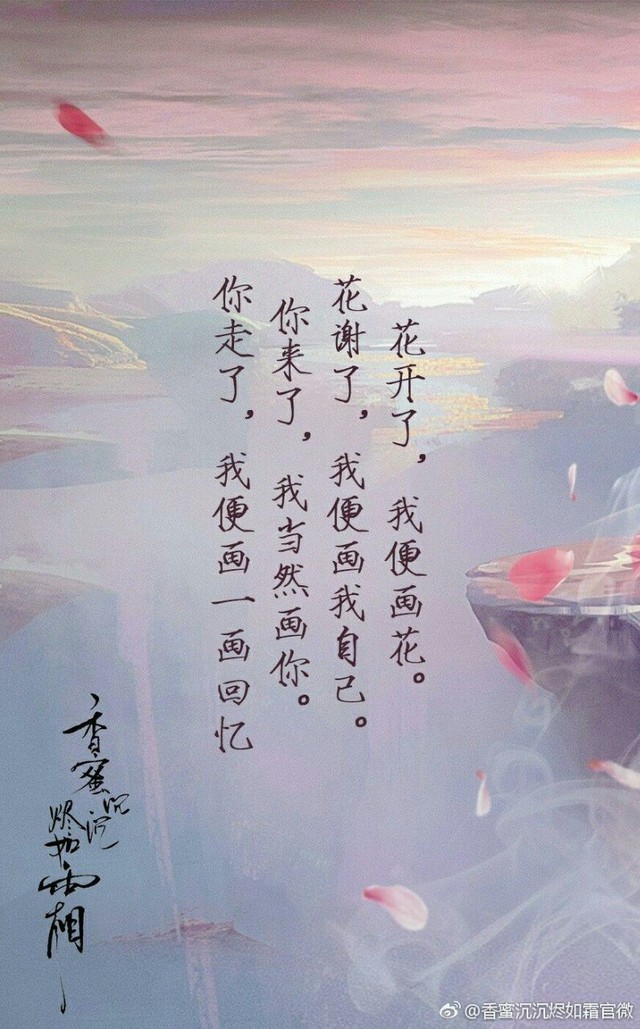 花开了，我便画花。
花谢了，我便画我自己。
你来了，我当然画你。
你走了，我便画一画回忆
香蜜沉沉
烬如霜
@香蜜沉沉烬如霜官微